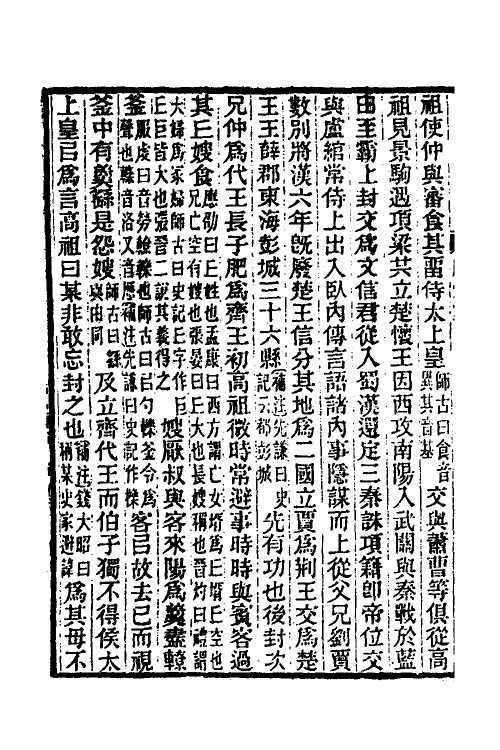 祖使仲與審食其畱侍太上皇師古曰食音異其音基交與蕭曹等俱從高
祖見景駒遇項梁共立楚懷王因西攻南陽入武關與秦戰於藍
田至霸上封交爲文信君從入蜀漢還定三秦誅項籍卽帝位交
與盧綰常侍上出入臥內傳言語諸內事隱謀而上從父兄劉賈
數別將漢六年旣廢楚王信分其地爲二國立賈爲荆王交爲楚
王王薛郡東海彭城三十六縣補注先謙曰史記云都彭城先有功也後封次
兄仲爲代王長子肥爲齊王初高祖微時常避事時時與賓客過
其丘嫂食應劭曰丘姓也孟康曰西方謂亡女壻爲丘壻丘空也兄亡空有嫂也張晏曰丘大也長嫂稱也晉灼曰禮謂
大婦爲冢婦師古曰史記丘字作巨丘巨皆大也張晉二說其義得之嫂厭叔與客來陽爲羹盡轑
釜服虔曰音勞轑轢也師古曰以勺轢釜令爲聲也轑音洛又音歷補注先謙曰史記作櫟客㠯故去已而視
釜中有羹繇是怨嫂師古曰繇與由同及立齊代王而伯子獨不得侯太
上皇㠯爲言高祖曰某非敢忘封之也補注錢大昭曰稱某史家避諱爲其母不